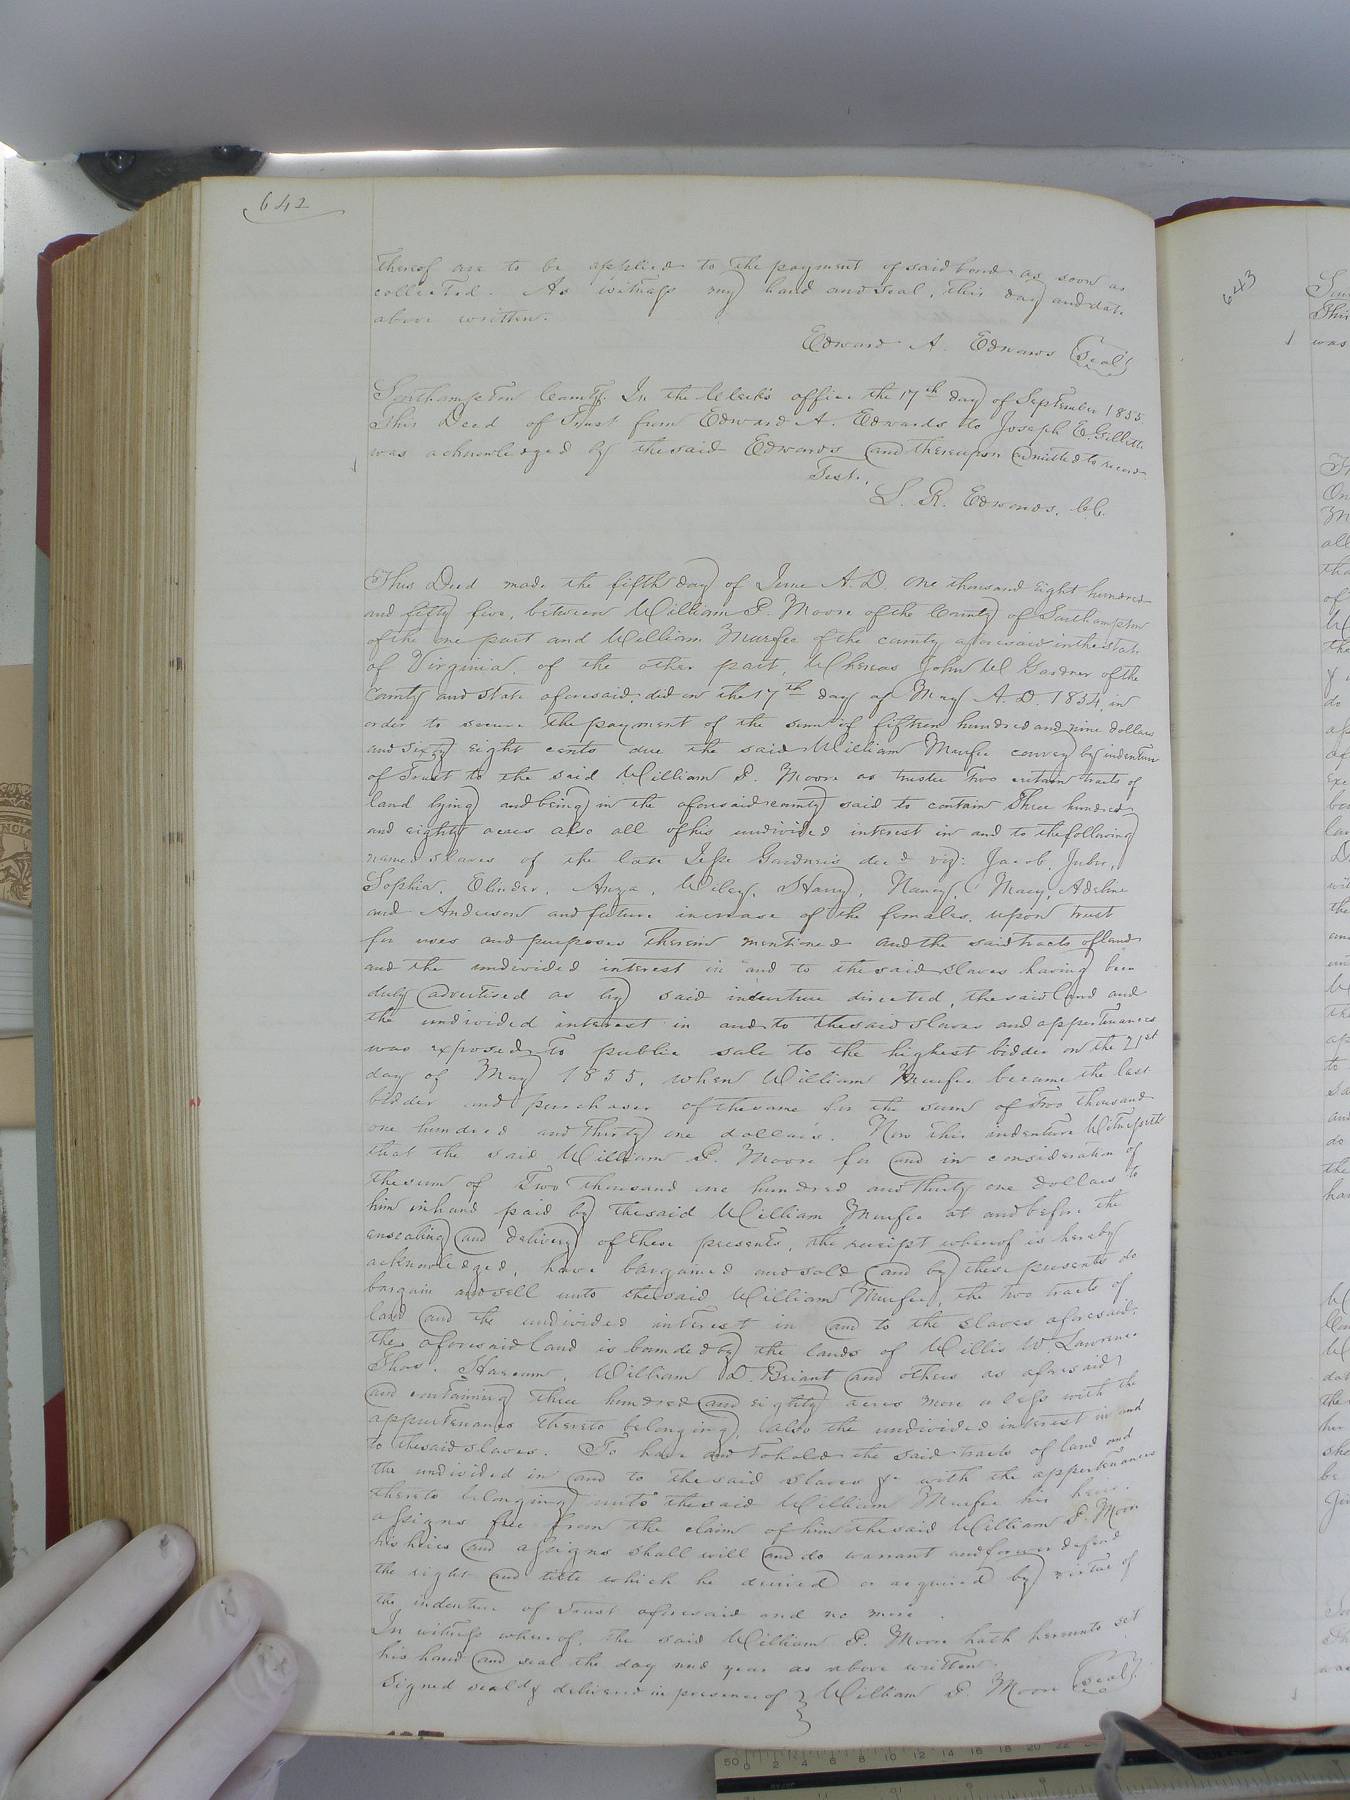 642
thereof are to be applied to the payment of said bond as soon as
collected. As witness my hand and seal, this day and date
above written.
Edward A. Edwards (Seal)
Southampton County. In the Clerk's office the 17th day of September 1855
This Deed of Trust from Edward A. Edwards to Joseph E. Gillett
was acknowledged by the said Edwards and thereupon admitted to record
Test.,
L. R. Edwards, C.C.
This Deed made the fifth day of June A. D. One thousand eight hundred
and fifty five, between William P. Moore of the County of Southampton
of the one part and William Murfee of the county aforesaid in the state
of Virginia of the other part, Whereas John W Gardner of the
County and state aforesaid, did on the 17th day of May A. D. 1854, in
order to secure the payment of the sum of fifteen hundred and nine dollars
and sixty eight cents due the said William Murfee convey by indenture
of Trust to the said William P. Moore as trustee two certain tracts of
land lying and being in the aforesaid county said to contain Three hundred
and eighty acres also all of his undivided interest in and to the following
named slaves of the late Jesse Gardner's decd viz: Jacob, Juber,
Sophia, Elinder, Anza, Wiley, Harry, Nancy, Macy, Adeline
and Anderson and future increase of the females, upon trust
for uses and purposes therein mentioned and the said tracts of land
and the undivided interest in and to the said slaves having been
duly advertised as by said indenture directed, the said land and
the undivided interest in and to the said slaves and appertenances
was exposed to public sale to the highest bidder on the 21st
day of May 1855, when William Murfee became the last
bidder and purchaser of the same for the sum of Two thousand
one hundred and thirty one dollars. Now this indenture Witnesseth
that the said William P. Moore for and in consideration of
the sum of Two thousand one hundred and thirty one dollars to
him in hand paid by the said William Murfee at and before the
ensealing and delivery of these presents, the receipt whereof is hereby
acknowledged, have bargained and sold and by these presents do
bargain and sell unto the said William Murfee, the two tracts of
land and the undivided interest in and to the slaves aforesaid:
the aforesaid land is bounded by the lands of Willis W. Lawrence
Thos. Harcum, William D. Briant and others as aforesaid
and containing three hundred and eighty acres more or less with the
appertenances thereto belonging, also the undivided interest in and
to the said slaves. To have and to hold the said tracts of land and
the undivided in and to the said slaves &c with the appertenances
thereto belonging unto the said William Murfee his heirs.
assigns free from the claim of him the said William P. Moore
his heirs and assigns shall will and do warrant and forever defend
the right and title which he derived or acquired by virtue of
the indenture of Trust aforesaid and no more.
In witness whereof, the said William P. Moore hath hereunto set
his hand and seal the day and year as above written.
Signed seald & delivered in presence of } William P. Moore (Seal)
643